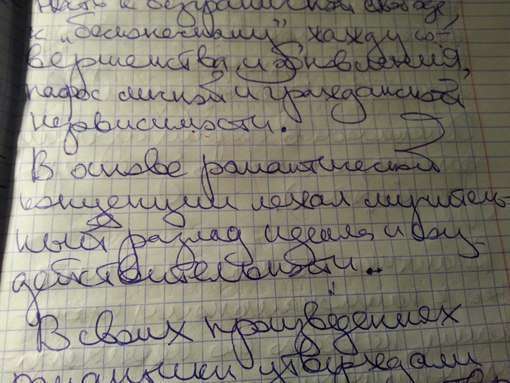 к безграничной свободе,
к „бесконечному“, жажду со-
вершенства и обновления,
пафос личной и гражданской
независимости.
В основе романтической
концепции лежал мучитель-
ный разлад идеала и
действительности.
В своих произведениях
романтики утверждали